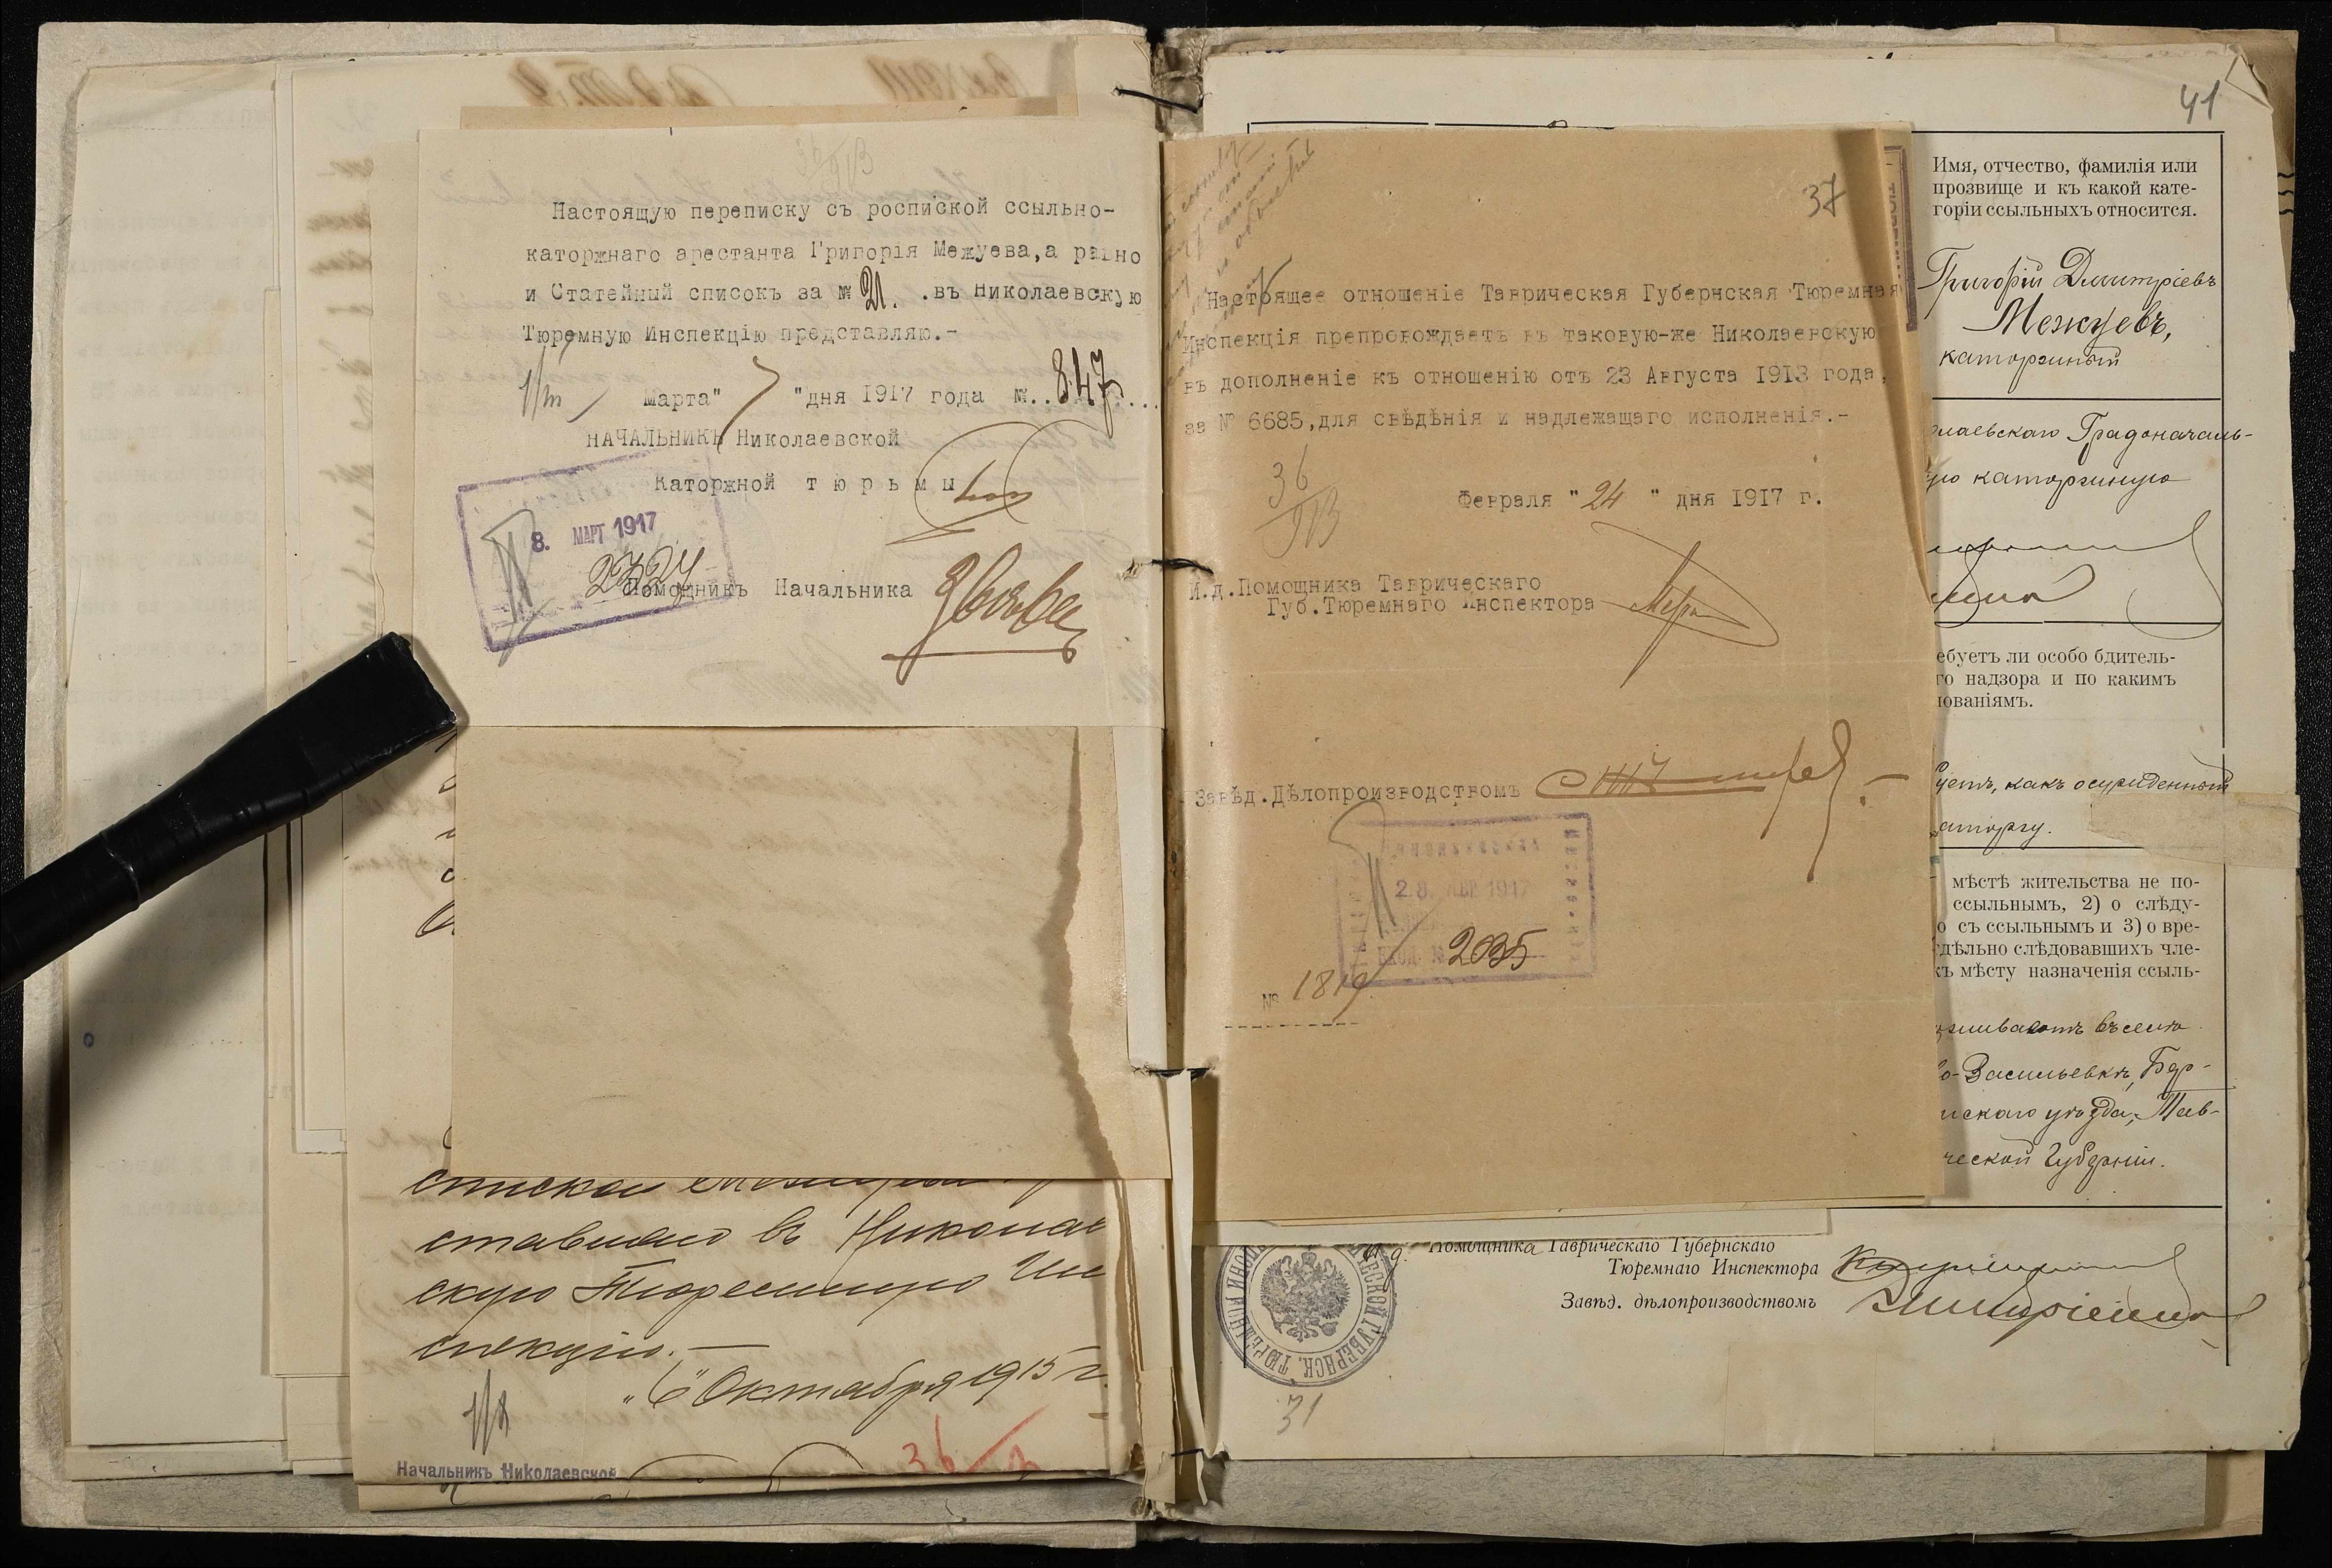 36/913
Настоящую переписку съ роспиской ссыльно-
каторжнаго арестанта Григорія Межуева,а равно
и Статейный списокъ за № 21. .въ Николаевскую
Тюремную Инспекцію представляю.-
Марта" 7 "дня 1917 года №..847...
НАЧАЛЬНИКЪ Николаевской
Каторжной тюрьмы
8. МАРТ 1917
2324
Помощникъ Начальника
ставляю въ Николаев
скую Тюремную Ин
спекцію.—
"6" Октября 1915 г.
36
Начальникъ Николаевской
37
Настоящее отношеніе Таврическая Губернская Тюремная
Инспекція препровождаетъ въ таковую-же Николаевскую
въ дополненіе къ отношенію отъ 23 Августа 1913 года,
за № 6685,для свѣдѣнія и надлежащаго исполненія.-
36/913
Февраля "24" дня 1917 г.
И.д.Помощника Таврическаго
Губ.Тюремнаго Инспектора
Завѣд.Дѣлопроизводствомъ
28. ФЕВ 1917
ВХОД. № 2035
№ 1819
41
Имя, отчество, фамилія или
прозвище и къ какой кате-
горіи ссыльныхъ относится.
Григорій Дмитріевъ
Межуевъ,
каторжный
лаевскаго Градоначаль-
ую каторжную
ебуетъ ли особо бдитель-
го надзора и по какимъ
нованіямъ.
уетъ, какъ осужденный
аторгу.
мѣстѣ жительства не по-
ссыльнымъ, 2) о слѣду-
о съ ссыльнымъ и 3) о вре-
дѣльно слѣдовавшихъ чле-
къ мѣсту назначенія ссыль-
живаютъ въ селѣ
о-Васильевкѣ, Бер-
нскаго уѣзда, Тав-
ческой Губерніи.
Помощника Таврическаго Губернскаго
Тюремнаго Инспектора
Завѣд. дѣлопроизводствомъ
31